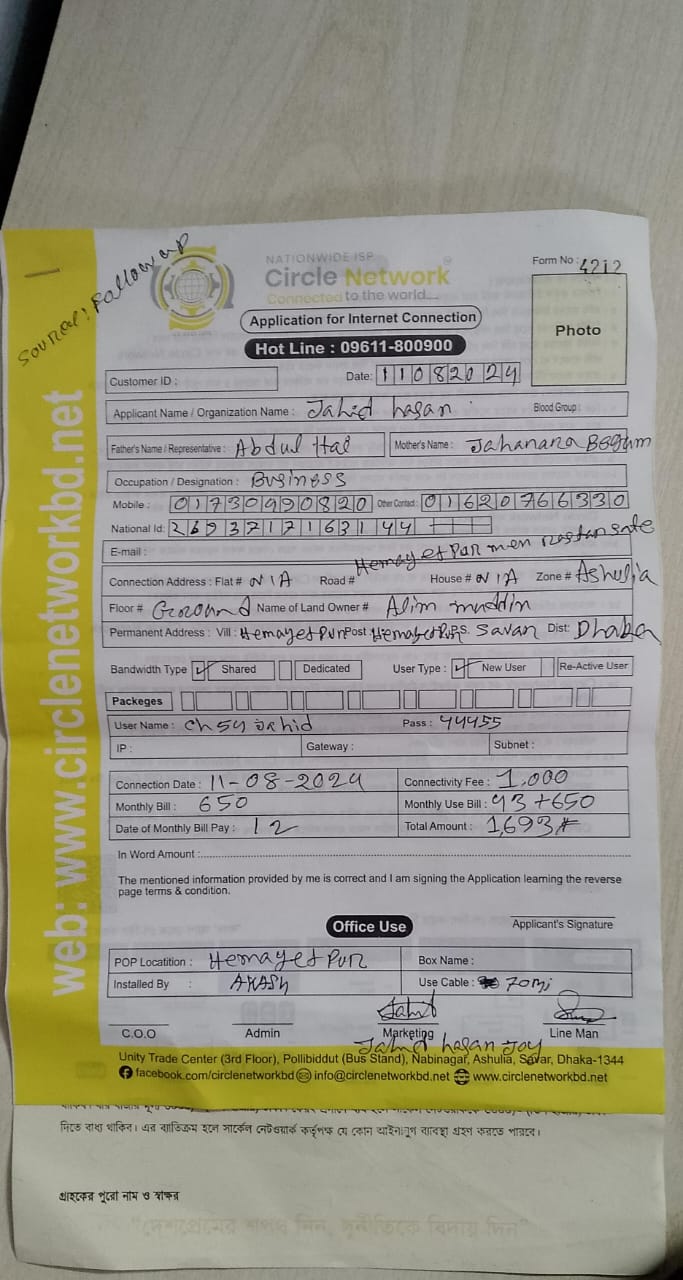 Source: Followup
NATIONWIDE ISP
Circle Network
Connected to the world...
Form No : 4212
Application for Internet Connection
Hot Line : 09611-800900
Photo
Customer ID :
Date: 11082024
Applicant Name / Organization Name : Jahid hasan
Blood Group :
Father's Name / Representative : Abdul Hai Mother's Name : Jahanara Begum
Occupation / Designation : Business
Mobile : 01730990820 Other Contact : 01620766330
National Id: 2693717163144
E-mail :
Hemayet Pur men
Connection Address : Flat # N/A Road # House # N/A Zone # Ashulia
Floor # Ground Name of Land Owner # Alim muddin
Permanent Address : Vill : Hemayet Pur Post : Hemayet Pur P.S. Savar Dist: Dhaka
Bandwidth Type Shared Dedicated User Type : New User Re-Active User
Packeges
User Name : Pass : 44455
IP : Gateway : Subnet :
Connection Date : 11-08-2024 Connectivity Fee : 1,000
Monthly Bill : 650 Monthly Use Bill : 43+650
Date of Monthly Bill Pay : 12 Total Amount : 1,693
In Word Amount :
The mentioned information provided by me is correct and I am signing the Application learning the reverse
page terms & condition.
Office Use
Applicant's Signature
POP Locatition : Hemayet Pur Box Name :
Installed By : AKASH Use Cable : 70mi
Jahid
C.O.O Admin Marketing Line Man
Jahid hasan Joy
Unity Trade Center (3rd Floor), Pollibiddut (Bus Stand), Nabinagar, Ashulia, Savar, Dhaka-1344
facebook.com/circlenetworkbd info@circlenetworkbd.net www.circlenetworkbd.net
web: www.circlenetworkbd.net
দিতে বাধ্য থাকিব। এর ব্যতিক্রম হলে সার্কেল নেটওয়ার্ক কর্তৃপক্ষ যে কোন আইনানুগ ব্যবস্থা গ্রহণ করতে পারবে।
গ্রাহকের পুরো নাম ও স্বাক্ষর
"দেশপ্রেমের শপথ নিন, দুর্নীতিকে বিদায় দিন"